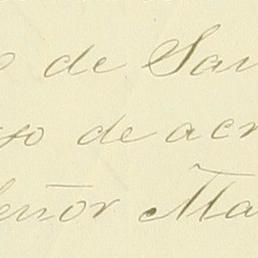 o de San
so de acr
Señor Ma